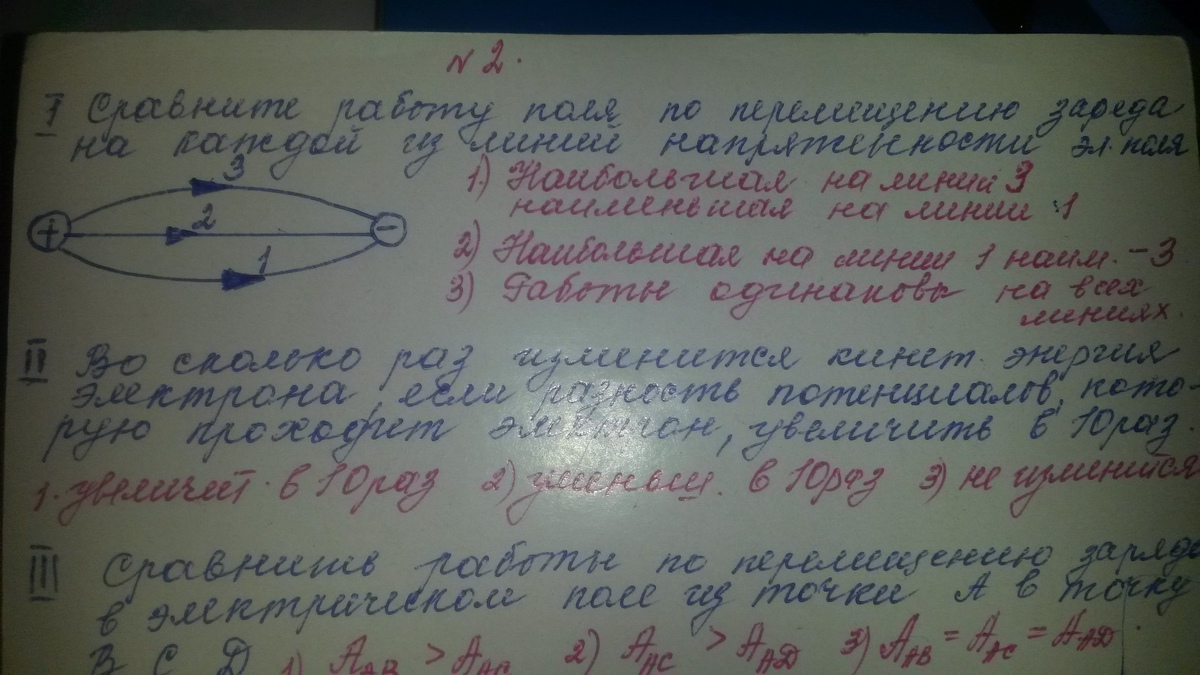 N 2.
I Сравните работу поля по перемещению заряда
на каждой из линий напряженности эл. поля
3
2
1
+
−
1) Наибольшая на линий 3
наименьшая на линии 1
2) Наибольшая на линии 1 наим. - 3
3) Работы одинаковы на всех
линиях.
II Во сколько раз изменится кинет. энергия
электрона, если разность потенциалов, кото-
рую проходит электрон, увеличить в 10 раз.
1. увеличит. в 10 раз 2) уменьш. в 10 раз 3) не изменится
III Сравнить работы по перемещению заряда
в электрическом поле из точки А в точку
В С Д 1) A_AB > A_AC 2) A_AC > A_AД 3) A_AB = A_AC = A_AД.